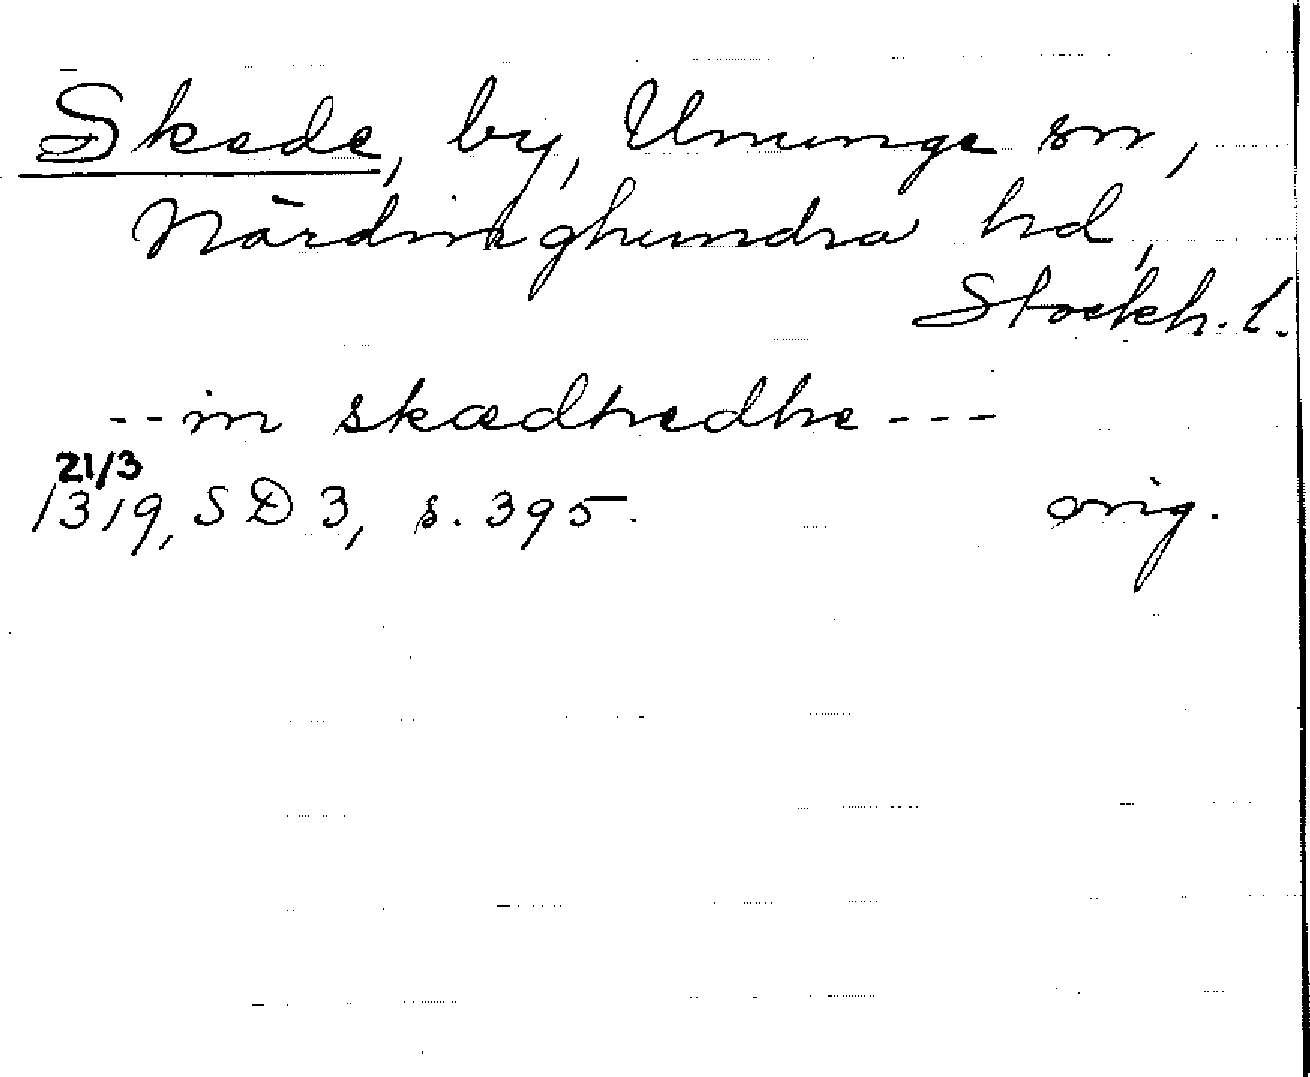 Skede, by, Ununge sn,
Närdinghundra hd,
Stockh. l.
-- in skædhedhe ---
21/3
1319, SD 3, s. 395. orig.